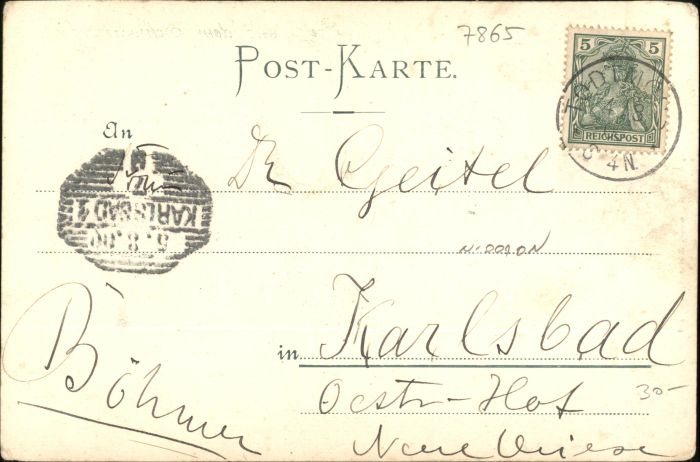 7865
POST-KARTE.
5 5
REICHSPOST
4N.
An
Dr Geitel
KARLSBAD 1
5.8.00
in Karlsbad
Böhmen
Oestr-Hof
30-
Neue Wiese